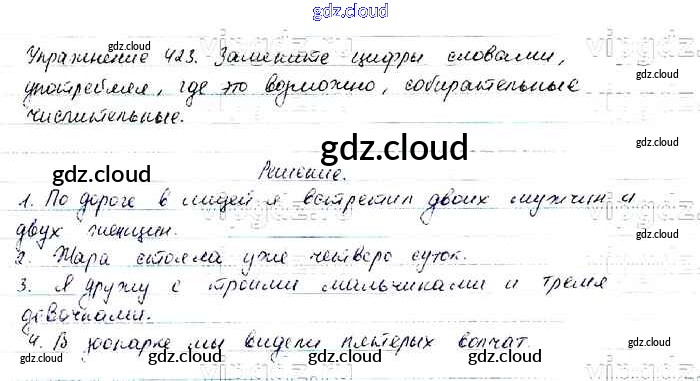 gdz.cloud
Упражнение 423. Замените цифры словами,
употребляя, где это возможно, собирательные
числительные.
gdz.cloud
Решение.
1. По дороге в лицей я встретил двоих мужчин и
двух женщин.
2. Жара стояла уже четверо суток.
3. Я дружу с троими мальчиками и тремя
девочками.
4. В зоопарке мы видели пятерых волчат.
gdz.cloud